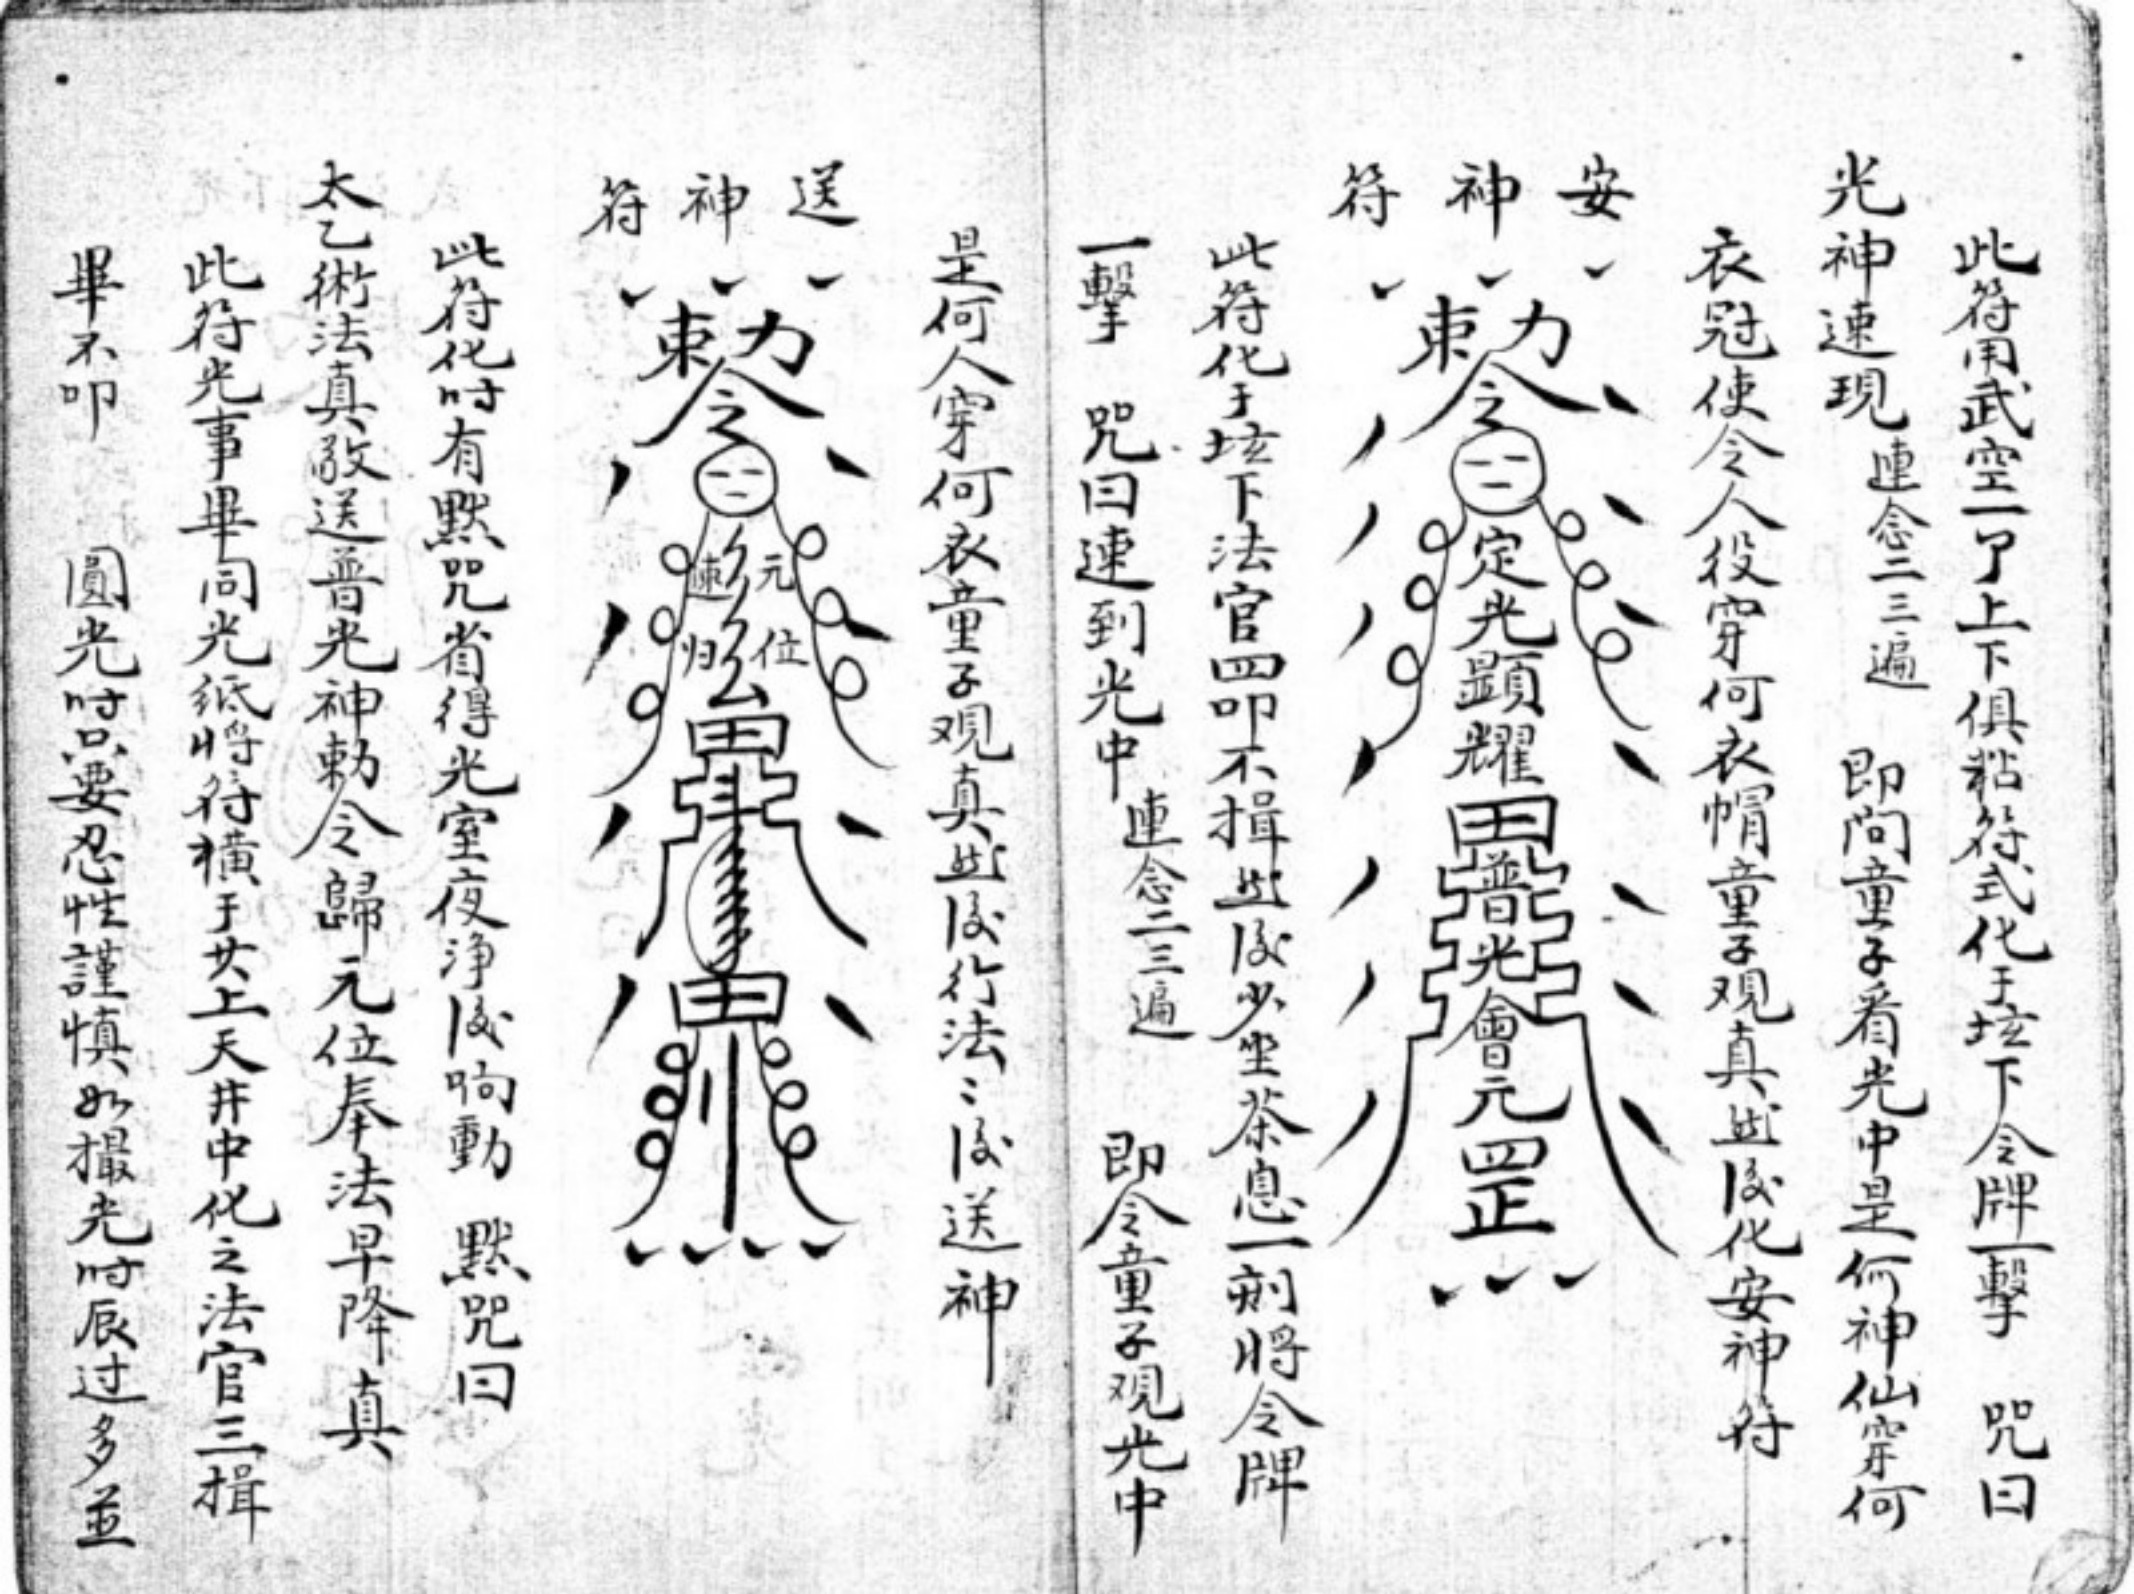 此符用武空一了上下俱粘符式化于坛下令牌一擊 咒曰
光神速現 連念二三遍 即問童子看光中是何神仙穿何
衣冠使令人役穿何衣帽童子观真此後化安神符
安神符
勅令
定光顕耀
普光會元
罡
此符化于坛下法官四叩不揖此後少坐茶息一刻將令牌
一擊 咒曰速到光中 連念二三遍 即令童子观光中
是何人穿何衣童子观真此後行法〻後送神
送神符
勅令
元位
速归
此符化时有默咒省得光室夜净後响動 默咒曰
太乙術法真敬送普光神勅令歸元位奉法早降真
此符光事畢同光纸將符横于共上天井中化之法官三揖
畢不叩 圓光时只要忍性謹慎如撮光时辰过多並